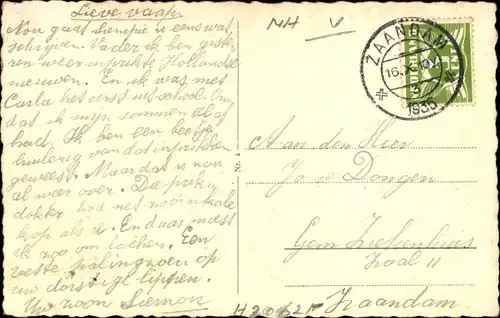 Lieve vaap
Nou gaat Siempie u eens wat
schrijven. Vader ik ben giste-
ren weer inprikte Hollandse
nieuwen. En ik was met
Carla het eerst uit school. Om
dat ik mijn sommen al af
had. Ik ben een beetje
huilerig van dat inprikken
geweest. Maar dat is nou
al weer over. Die prik
dokter had net zo'n kale
kop als u. En daar moest
ik zoo om lachen. Een
veste palingzoen op
uw dorstige lippen.
Uw zoon Siemon
MH V
ZAANDAM
16.X.
3
1935
NEDERLAND
Aan den Heer
Jo v Dongen
Gem Ziekenhuis
Zaal 11
Zaandam